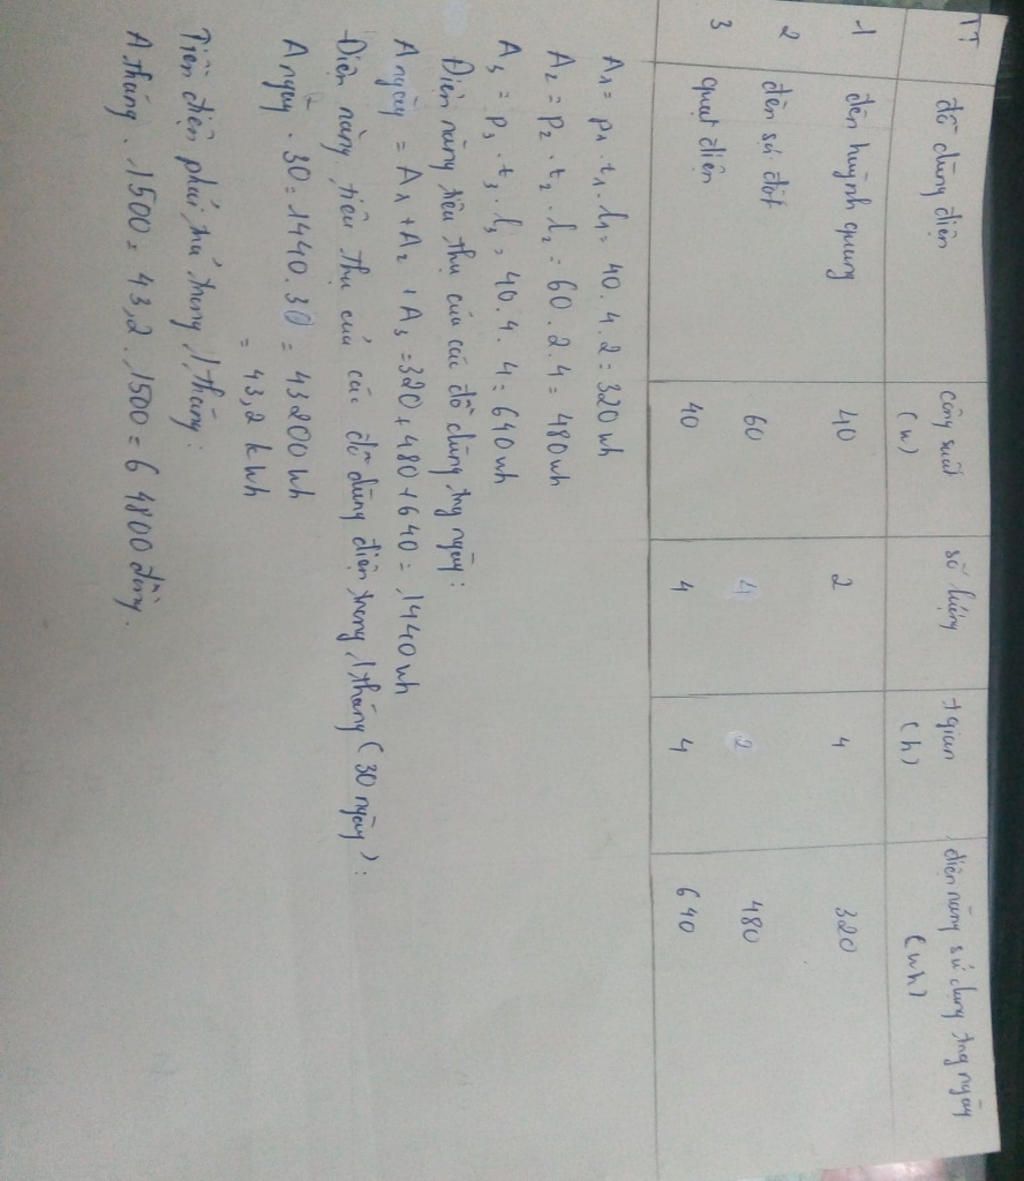 TT đồ dùng điện công suất (w) số lượng t gian (h) điện năng sử dụng tng ngày (wh)
1 đèn huỳnh quang 40 2 4 320
2 đèn sợi đốt 60 4 2 480
3 quạt điện 40 4 4 640
A1 = P1 . t1 . l1 = 40 . 4 . 2 = 320 wh
A2 = P2 . t2 . l2 = 60 . 2 . 4 = 480 wh
A3 = P3 . t3 . l3 = 40 . 4 . 4 = 640 wh
Điện năng tiêu thụ của các đồ dùng tng ngày :
A ngày = A1 + A2 + A3 = 320 + 480 + 640 = 1440 wh
Điện năng tiêu thụ của các đồ dùng điện trong 1 tháng ( 30 ngày ) :
A ngày . 30 = 1440 . 30 = 43200 wh
= 43,2 kwh
Tiền điện phải trả trong 1 tháng :
A tháng . 1500 = 43,2 . 1500 = 6 4800 đồng .